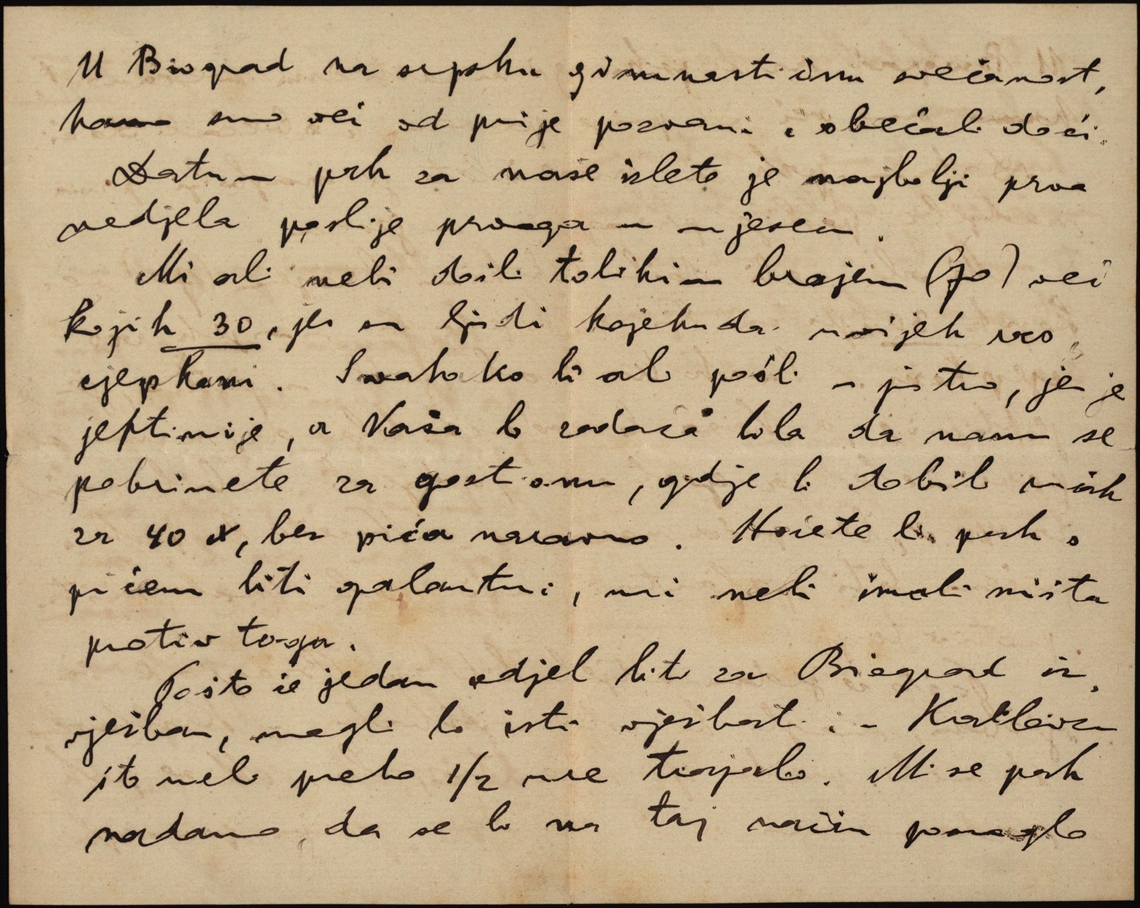 U Biograd na srpsku gimnastičnu svečanost,
kamo smo već od prije pozvani i obećali doći.
Datum pak za naše izlete je najbolji prva
nedjela poslije prvoga u mjesecu.
Mi ali nebi došli tolikim brojem (70) već
kojih 30, jer su ljudi kojekuda uvijek
cjepkani. Svakako bi ali pošli u jutro, jer je
jeftinije, a Vaša bi zadaća bila da nam se
pobrinete za gostionu, gdje bi dobili ručak
za 40 x, bez pića naravno. Hoćete li pak s
pićem biti galantni, mi nebi imali ništa
protiv toga.
Pošto će jedan odjel biti za Biograd iz,
vježban, mogli bi isti vježbati i u Karlovcu
što nebi preko 1/2 ure trajalo. Mi se pak
nadamo da se bi na taj način pomoglo